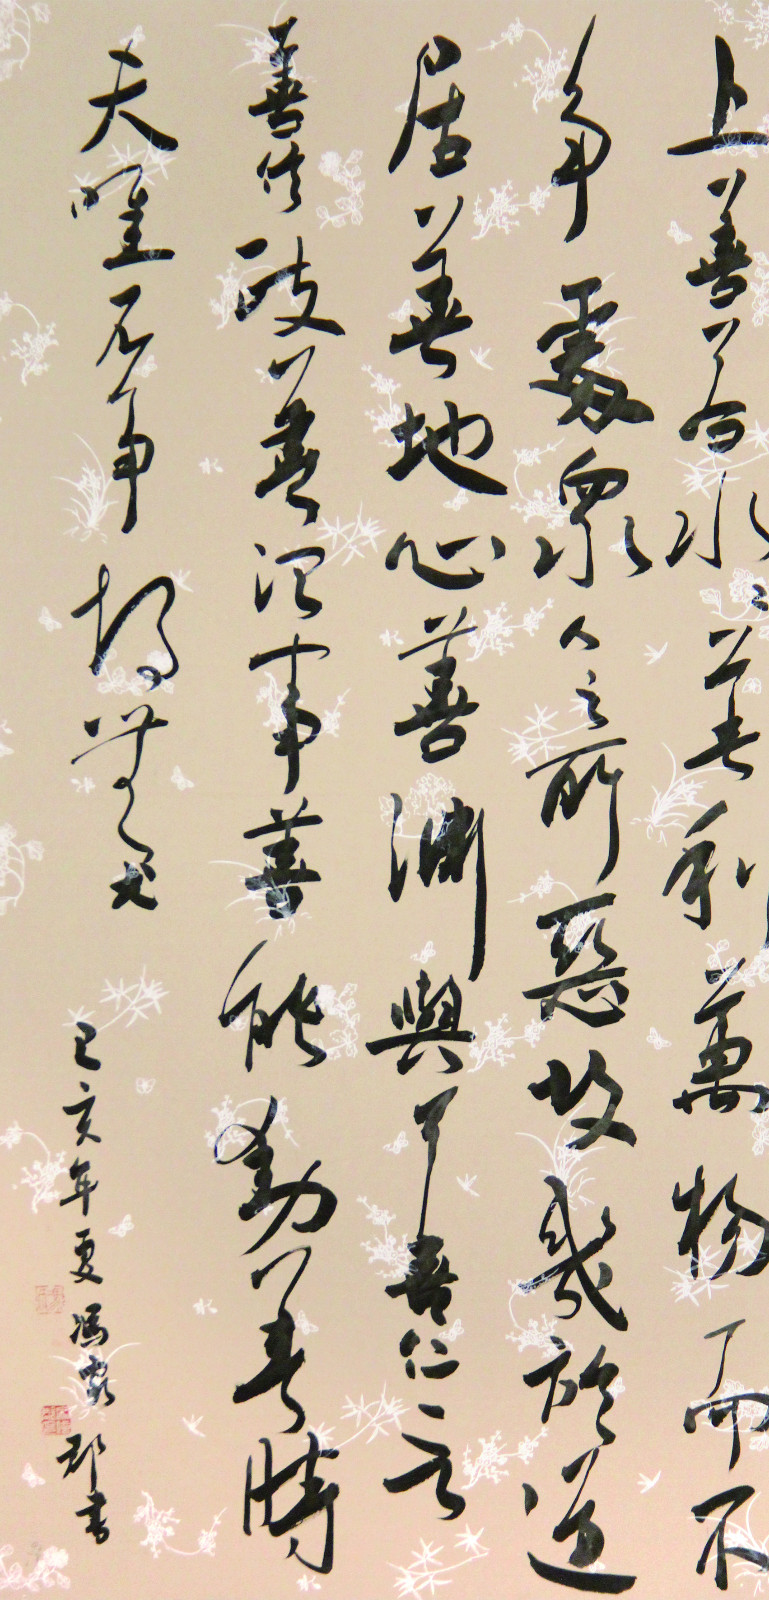 上善若水〻善利萬物而不
爭處眾人之所惡故幾於道
居善地心善淵與善仁言
善信政善治事善能動善時
夫唯不爭故無尤
己亥年夏馮 郡書